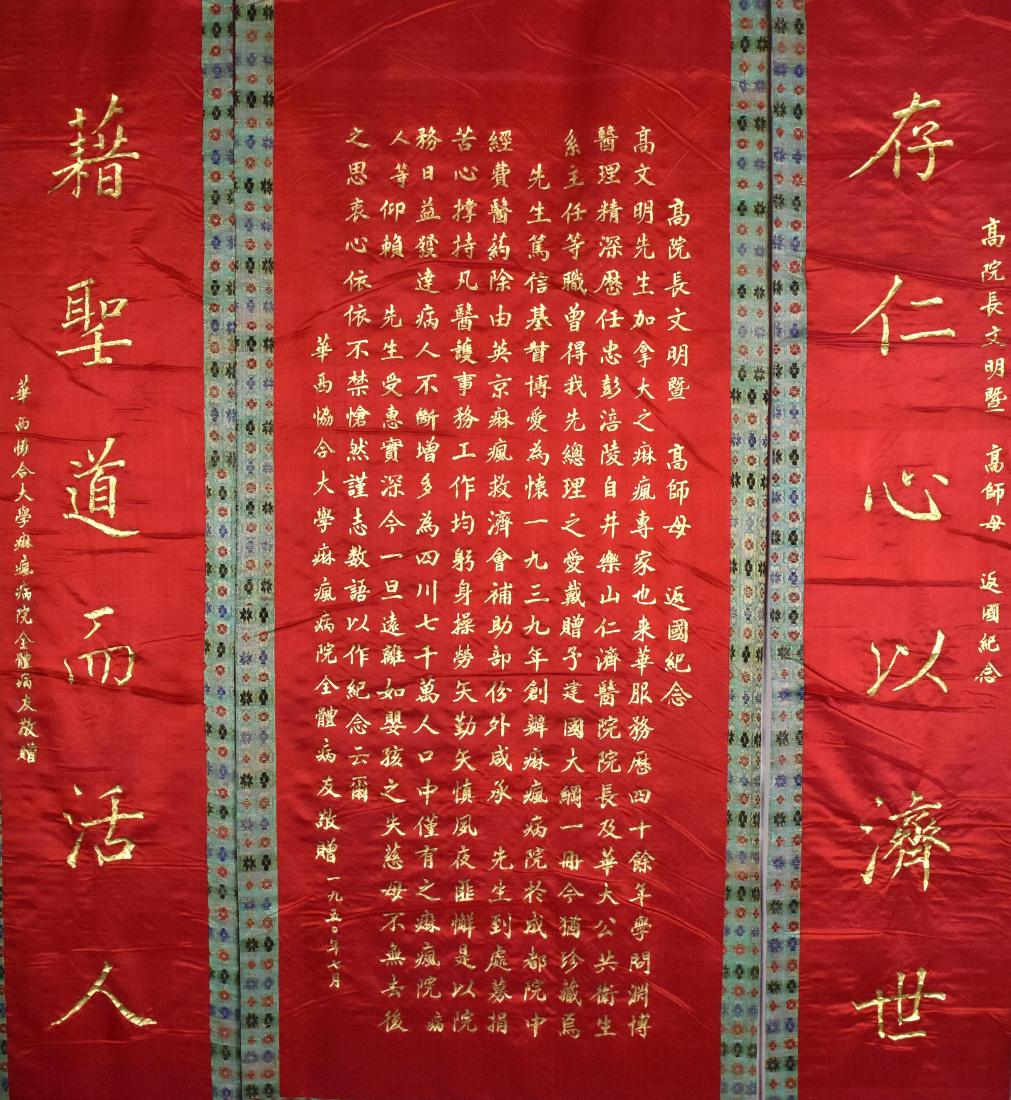 高院長文明暨 高師母 返國紀念
存仁心以濟世
高院長文明暨 高師母 返國紀念
高文明先生加拿大之痳瘋專家也来華服務歷四十餘年學問淵博
醫理精深歷任忠彭涪陵自井樂山仁濟醫院院長及華大公共衛生
系主任等職曾得我先總理之愛戴贈予建國大綱一冊今猶珍藏焉
先生篤信基督博愛為懷一九三九年創辦痳瘋病院於成都院中
經費醫葯除由英京痳瘋救濟會補助部份外咸承 先生到處募捐
苦心撑持凡醫護事務工作均躬身操勞矢勤矢慎夙夜匪懈是以院
務日益發達病人不斷增多為四川七千萬人口中僅有之痳瘋院 病
人等仰賴 先生受惠實深今一旦遠離如嬰孩之失慈母不無去後
之思衷心依依不禁愴然謹志数語以作紀念云爾
華西恊合大學痳瘋病院全體病友敬贈 一九五〇年七月
藉聖道而活人
華西恊合大學痳瘋病院全體病友敬贈